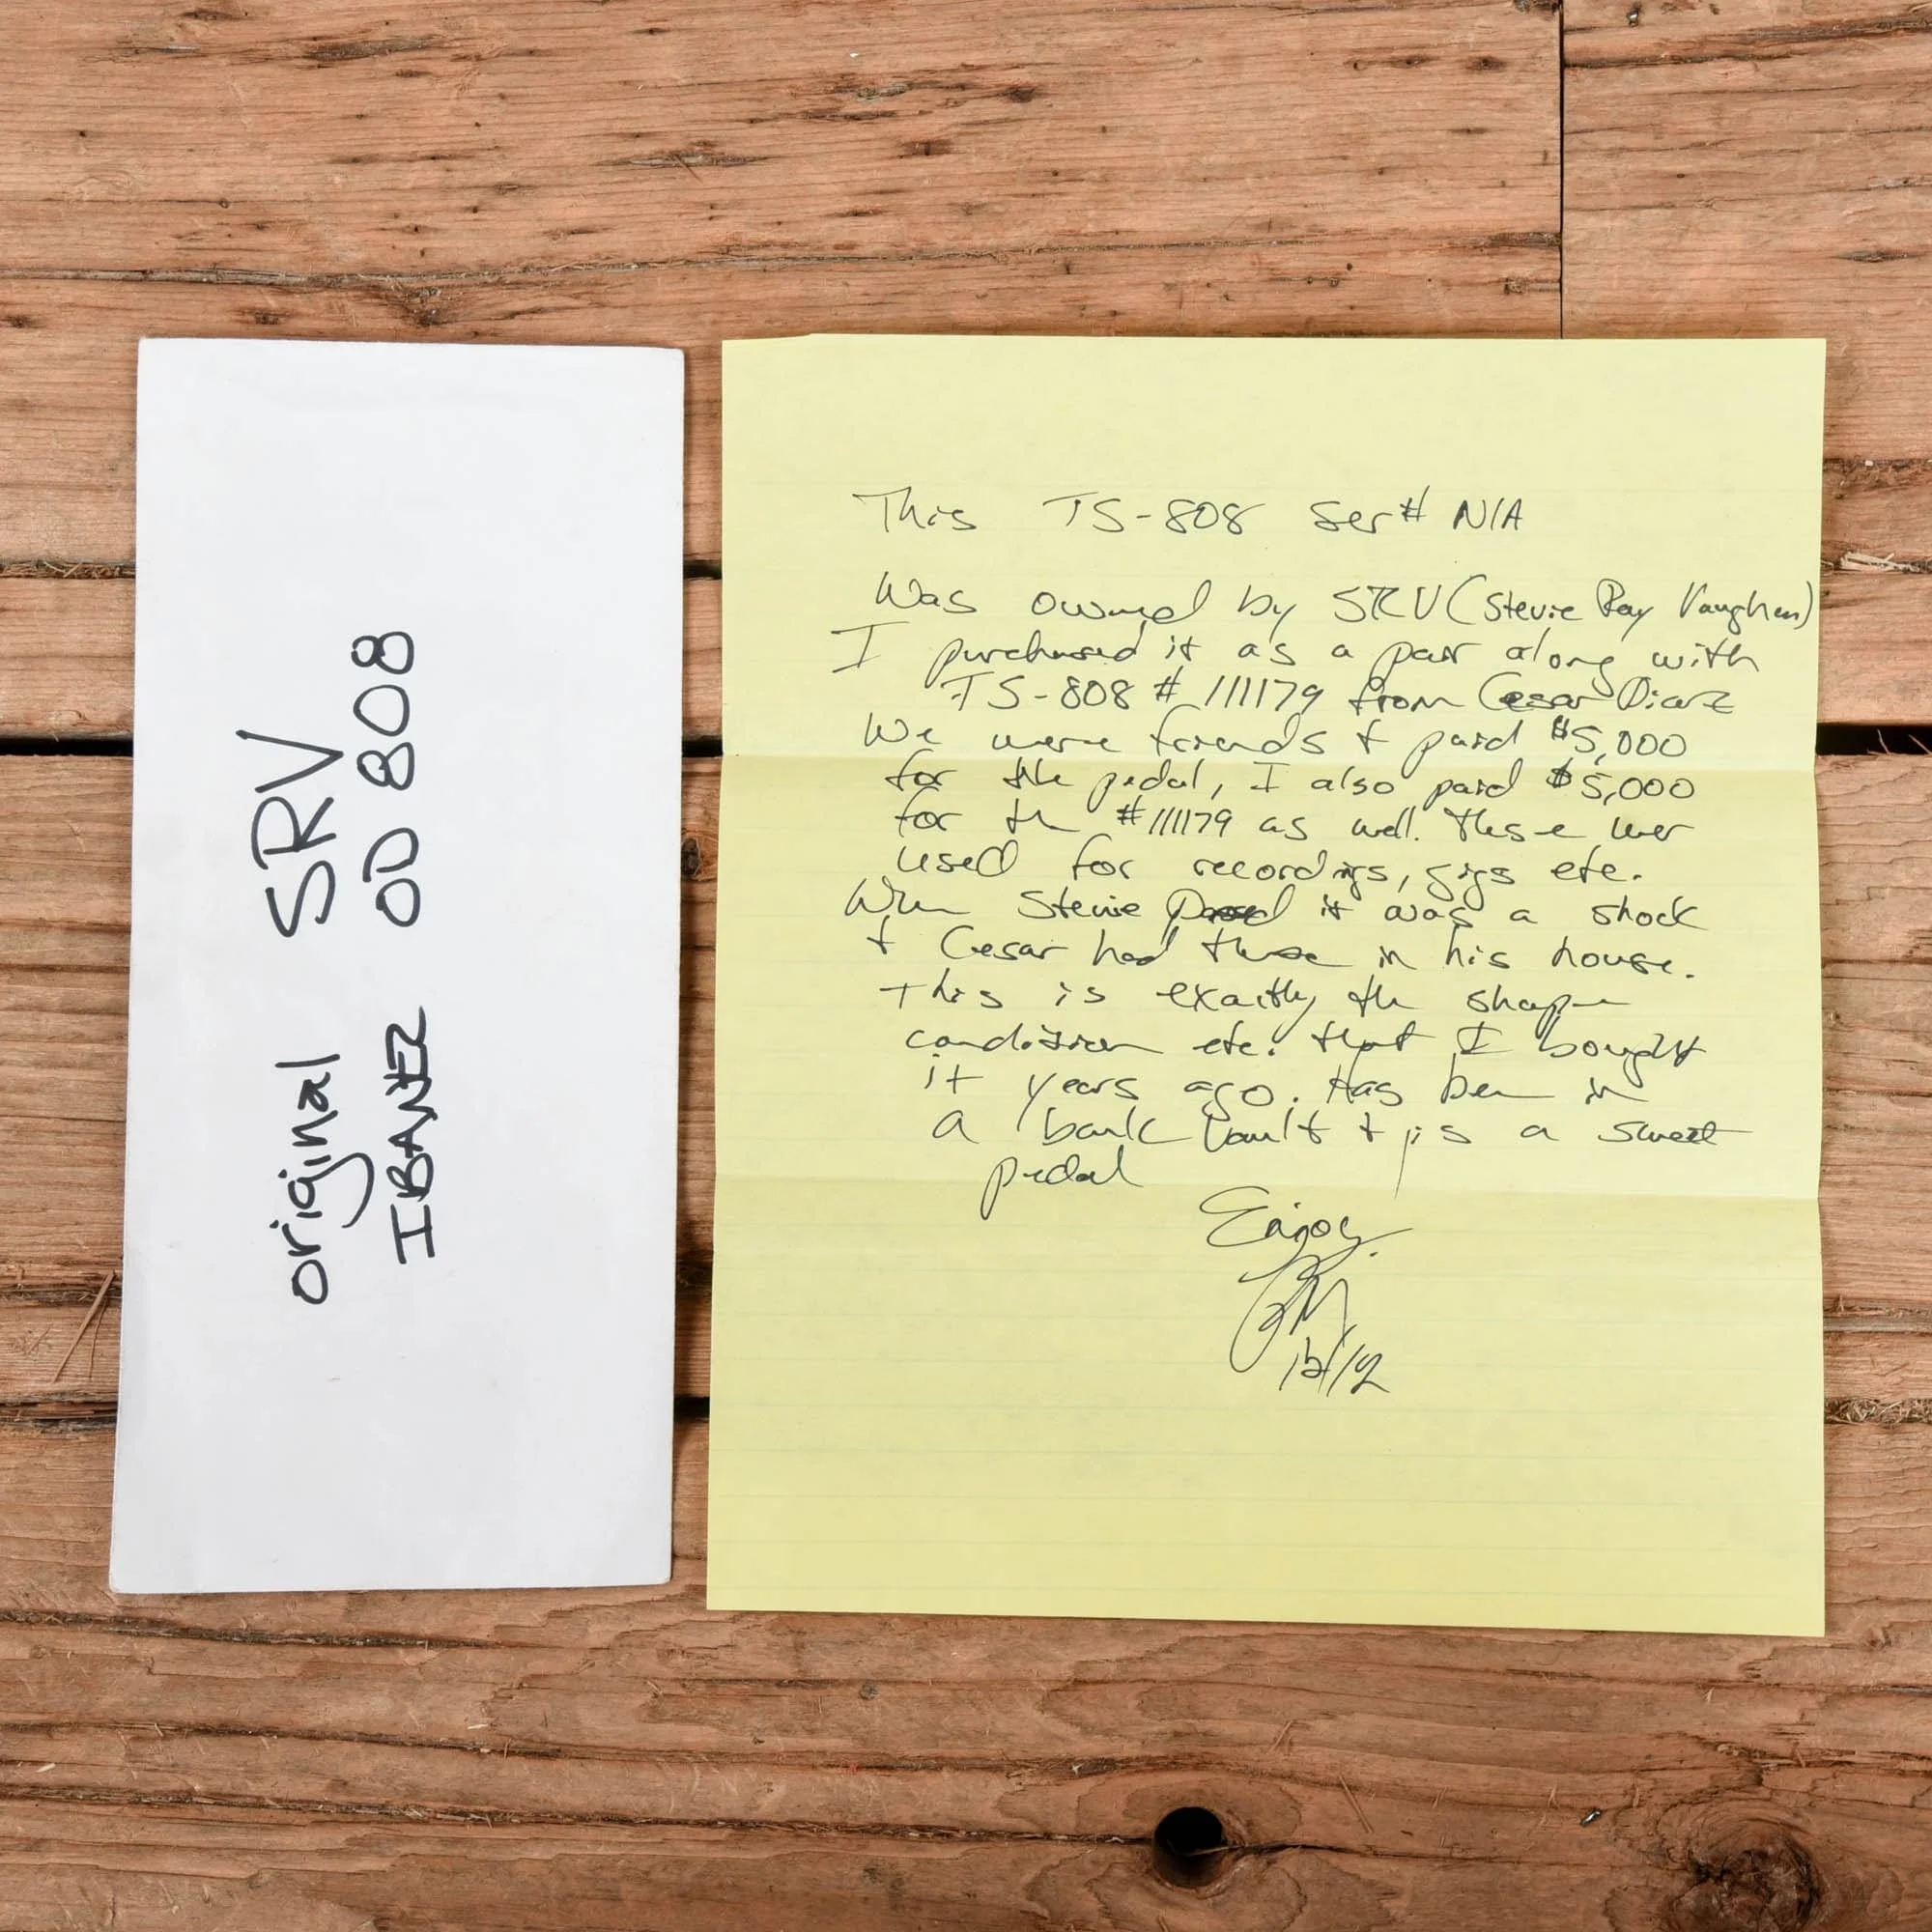 original SRV
IBANEZ OD 808
This TS-808 Ser# N/A
Was owned by SRV (Stevie Ray Vaughan)
I purchased it as a pair along with
TS-808 # 111179 from Cesar Diaz
We were friends + paid $5,000
for the pedal, I also paid $5,000
for the #111179 as well. These wer
used for recordings, gigs etc.
When Stevie passed it was a shock
+ Cesar had these in his house.
This is exactly the shape
condition etc. that I bought
it years ago. Has been in
a bank vault + is a sweet
pedal
Enjoy.
12/12